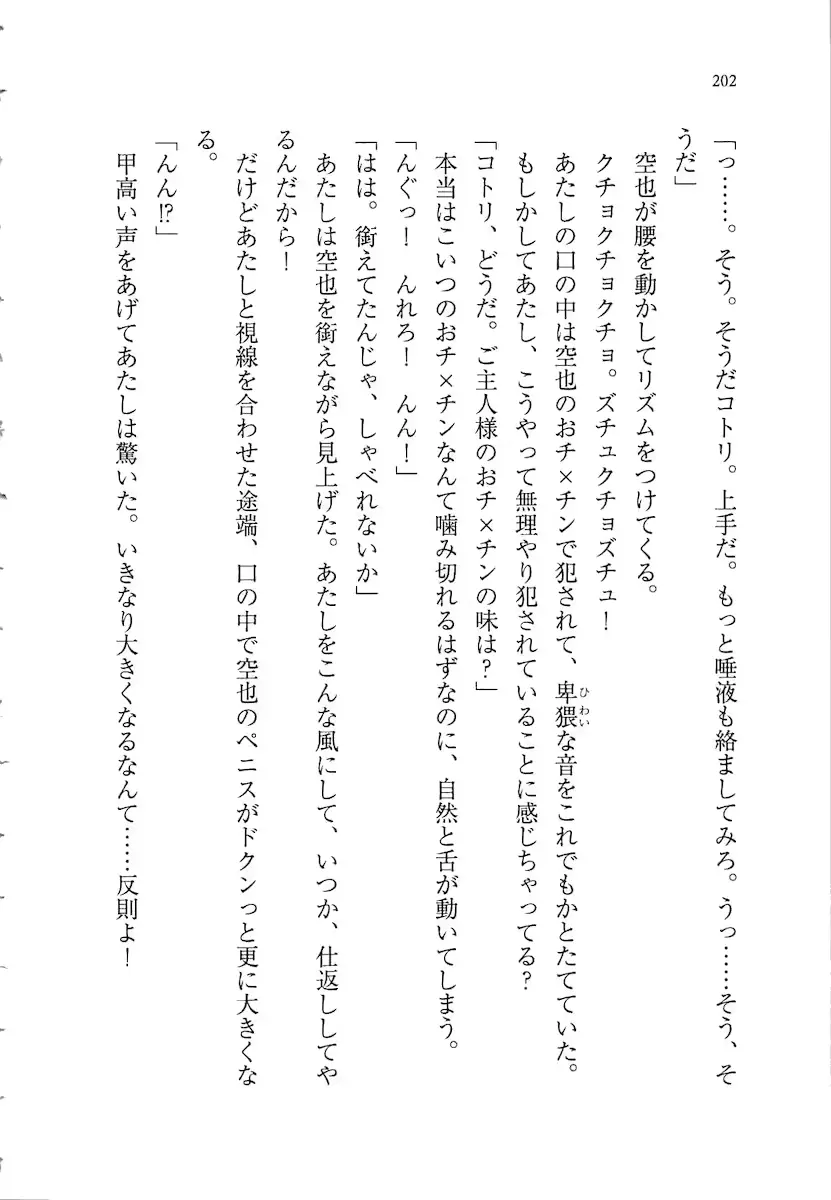 202
「っ……。そう。そうだコトリ。上手だ。もっと唾液も絡ましてみろ。うっ……そう、そ
うだ」
空也が腰を動かしてリズムをつけてくる。
クチョクチョクチョ。ズチュクチョズチュ！
あたしの口の中は空也のおチ×チンで犯されて、卑猥な音をこれでもかとたてていた。
ひわい
もしかしてあたし、こうやって無理やり犯されていることに感じちゃってる？
「コトリ、どうだ。ご主人様のおチ×チンの味は？」
本当はこいつのおチ×チンなんて噛み切れるはずなのに、自然と舌が動いてしまう。
「んぐっ！　んれろ！　んん！」
「はは。銜えてたんじゃ、しゃべれないか」
あたしは空也を銜えながら見上げた。あたしをこんな風にして、いつか、仕返ししてや
るんだから！
だけどあたしと視線を合わせた途端、口の中で空也のペニスがドクンっと更に大きくな
る。
「んん!?」
甲高い声をあげてあたしは驚いた。いきなり大きくなるなんて……反則よ！